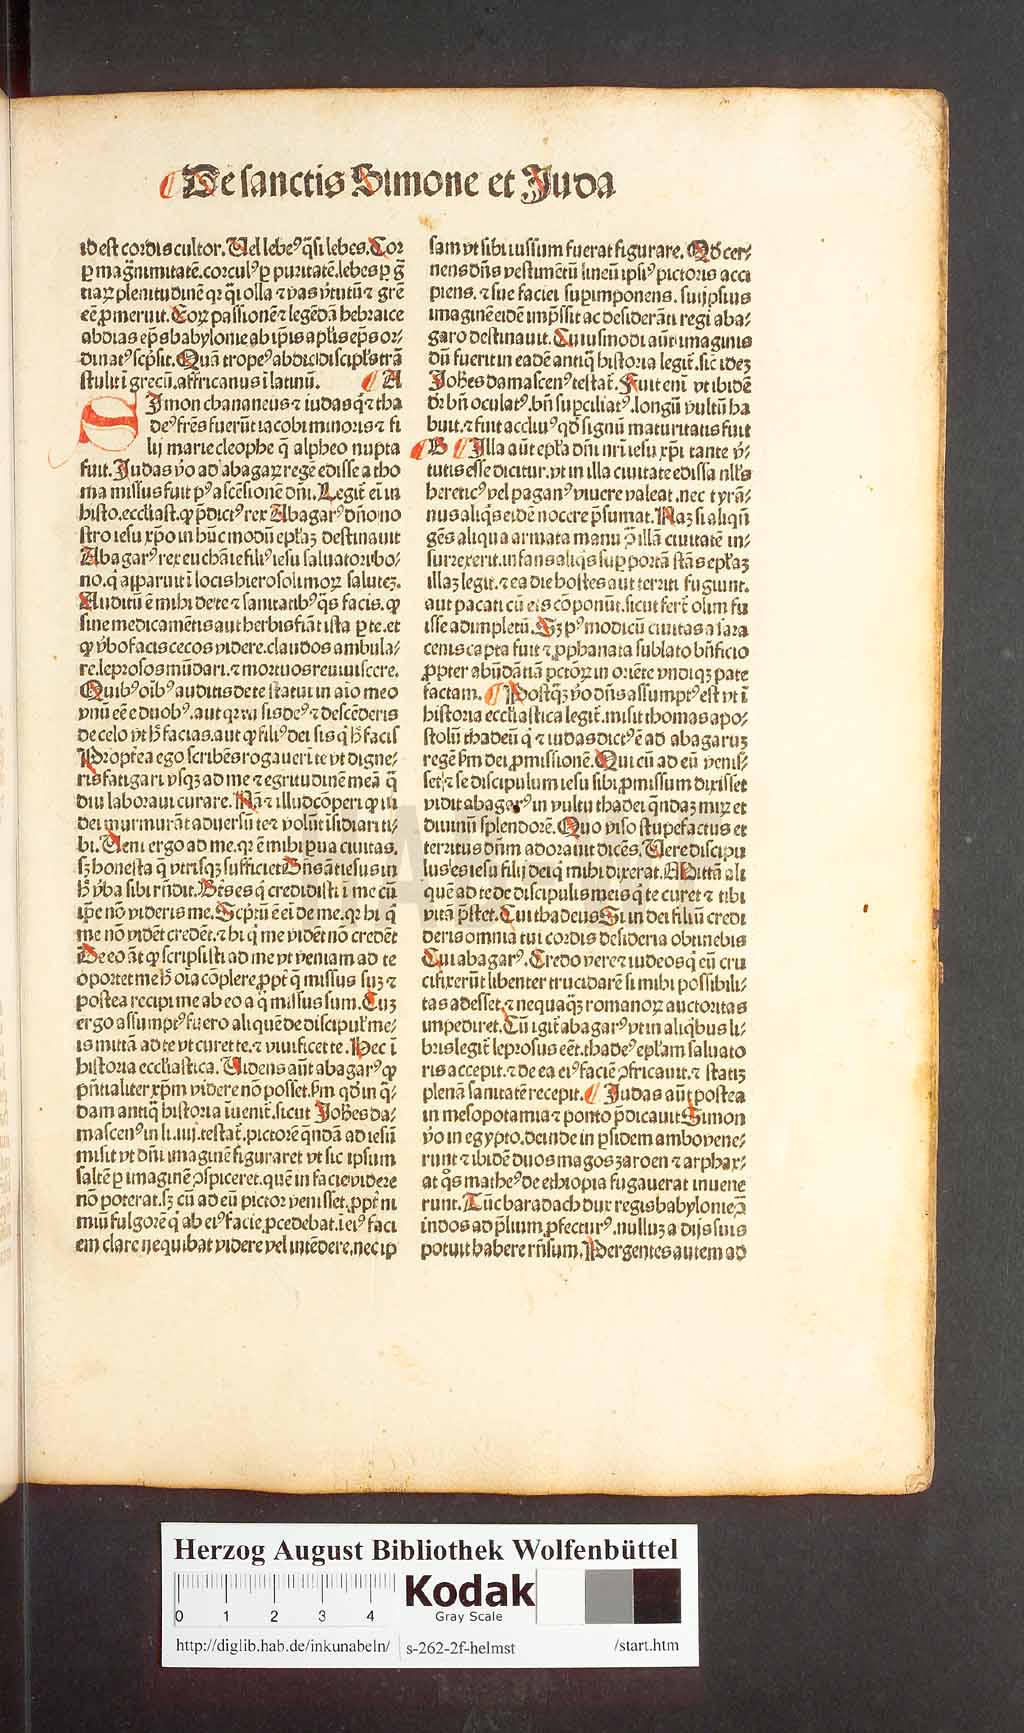 De sanctis Simone et Juda
id est cordis cultor. Uel lebeꝰ q̄si lebes. Cor
ꝑ magnimitatē. corculꝰ ꝑ puritatē. lebes ꝑ gr̄
tiaꝝ plenitudinē qꝛ q̄i olla ⁊ vas v̓tutū ⁊ grē
eē ꝓmeruit. Coꝝ passionē ⁊ legēdā hebraice
abdias ep̄s babylonie ab ip̄is aplīs ep̄s or⸗
dinatꝰ scp̄sit. Quā tropeꝰ abdie discipl̓s trā
stulit ī grecū. affricanus ī latinū. A
SImon chananeus ⁊ iudas q̄ ⁊ tha
deꝰ frēs fuerūt iacobi minoris ⁊ fi
lij marie cleophe q̄ alpheo nupta
fuit. Judas v̓o ad abagaꝝ regē edisse a tho
ma missus fuit pꝰ ascēsionē dn̄i. Legit̄ em̄ in
histo. eccl̓iast. ꝙ p̄dictꝰ rex Abagarꝰ dn̄o no
stro iesu xp̄o in hūc modū epl̓aꝫ destinauit
Abagarꝰ rex euchāie filiꝰ iesu saluatori bo⸗
no. q̄ apparuit ī locis hierosolimoꝝ saluteꝫ.
Auditū ē mihi de te ⁊ sanitatibꝰ q̄s facis. ꝙ
sine medicamētis aut herbis fiāt ista ꝑ te. et
ꝙ v̓bo facis cecos videre. claudos ambula⸗
re. leprosos mūdari. ⁊ mortuos reuiuiscere.
Quibꝰ oībꝰ auditis de te statui in aīo meo
vnū eē e duobꝰ. aut qꝛ tu sis deꝰ ⁊ descēderis
de celo vt h̓ facias. aut ꝙ filiꝰ dei sis q̇ h̓ facis
Propt̓ea ego scribēs rogaueri te vt digne⸗
ris fatigari vsqꝫ ad me ⁊ egritudinē meā q̄
diu laboraui curare. Nā ⁊ illud cōperi ꝙ iu
dei murmurāt aduersū te ⁊ volūt īsidiari ti⸗
bi. Ueni ergo ad me. qꝛ ē mihi ꝑua ciuitas.
sꝫ honesta q̄ vtrisqꝫ sufficiet Dn̄s āt iesus in
h̓ v̓ba sibi rn̄dit. Bt̄s es q̇ credidisti ī me cū
ip̄e nō videris me. Scp̄tū ē ei̇ de me. qꝛ hi q̇
me nō vidēt credēt. ⁊ hi q̇ me vidēt nō credēt
De eo āt ꝙ scripsisti ad me vt veniam ad te
oportet me h̓ oīa cōplere ꝓpt̓ q̄ missus suꝫ ⁊
postea recipi me ab eo a q̇ missus sum. Cuꝫ
ergo assumptꝰ fuero aliquē de discipul̓ me⸗
is mittā ad te vt curet te. ⁊ viuificet te. Hec ī
historia eccl̓iastica. Uidens aūt abagarꝰ ꝙ
pn̄tialiter xp̄m videre nō posset. fm̄ qd̓ in q̄⸗
dam antiq̄ historia īuenit̄. sicut Joh̓es da⸗
mascenꝰ in li. iiij. testat̄. pictorē q̄ndā ad iesū
misit vt dn̄i imaginē figuraret vt sic ipsum
saltē ꝑ imaginē ꝯspiceret. quē in facie videre
nō poterat. sꝫ cū ad eū pictor venisset. ꝓpt̓ ni
miū fulgorē q̇ ab eiꝰ facie ꝓcedebat. ī eiꝰ faci
em clare nequibat videre vel intēdere. nec ip
sam vt sibi iussum fuerat figurare. Qd̓ cer⸗
nens dn̄s vestimētū lineū ipsiꝰ pictoris acci
piens. ⁊ sue faciei suꝑimponens. sui ipsius
imaginē eidē imp̄ssit ac desiderāti regi aba⸗
garo destinauit. Cuiusmodi aūt imaginis
dn̄ fuerit in eadē antiq̄ historia legit̄. sic̄ ideꝫ
Joh̓es damascenꝰ testat̄. Fuit eni vt ibidē
dr̄ bn̄ oculatꝰ. bn̄ suꝑciliatꝰ. longū vultū ha
buit. ⁊ fuit accliuꝰ qd̓ signū maturitatis fuit
B Illa aūt epl̓a dn̄i nr̄i iesu xp̄i tante v̓⸗
tutis esse dicitur. vt in illa ciuitate edissa nll̓s
hereticꝰ vel paganꝰ viuere valeat. nec tyrā⸗
nus aliq̇s eidē nocere p̄sumat. Naꝫ si aliqn̄
gēs aliqua armata manu ꝯ illā ciuitatē in⸗
surrexerit. infans aliq̇s suꝑ portā stās epl̓aꝫ
illaꝫ legit. ⁊ ea die hostes aut territi fugiunt.
aut pacati cū eis cōponūt. sicut fert̄ olim fu
isse adimpletū. Sꝫ pꝰ modicū ciuitas a sara
cenis capta fuit ⁊ ꝓphanata sublato bn̄ficio
ꝓpter abūdātiā pctōꝝ in oriēte vndiqꝫ pate
factam. Postq̄ꝫ v̓o dn̄s assumptꝰ est vt ī
historia eccl̓iastica legit̄. misit thomas apo⸗
stolꝰ thadeū q̇ ⁊ iudas dictꝰ ē ad abagaruꝫ
regē fm̄ dei ꝓmissionē. Qui cū ad eū venis⸗
set ⁊ se discipulum iesu sibi ꝓmissum dixisset
vidit abagarꝰ in vultu thadei q̄ndaꝫ miꝝ et
diuinū splendorē. Quo viso stupefactus et
territus dn̄m adorauit dicēs. Uere discipu
lus es iesu filij dei q̇ mihi dixerat. Mittā ali
quē ad te de discipulis meis q̇ te curet ⁊ tibi
vitā p̄stet. Cui thadeus Si in dei filiū credi
deris omnia tui cordis desideria obtinebis
Cui abagarꝰ. Credo vere ⁊ iudeos q̇ eū cru
cifixerūt libenter trucidarē si mihi possibili⸗
tas adesset. ⁊ nequaqꝫ romanoꝝ auctoritas
impediret. Cū igit̄ abagarꝰ vt in aliq̇bus li⸗
bris legit̄ leprosus eēt. thadeꝰ epl̓am saluato
ris accepit. ⁊ de ea eiꝰ faciē ꝯfricauit. ⁊ statiꝫ
plenā sanitatē recepit. Judas aūt postea
in mesopotamia ⁊ ponto p̄dicauit Simon
v̓o in egypto. deinde in ꝑsidem ambo vene⸗
runt ⁊ ibidē duos magos zaroen ⁊ arphax⸗
at q̇s matheꝰ de ethiopia fugauerat inuene
runt. Tūc baradach dux regis babylonie ꝯ̄
indos ad p̄lium ꝓfecturꝰ. nulluꝫ a dijs suis
potuit habere rn̄sum. Pergentes autem ad
Herzog August Bibliothek Wolfenbüttel
0 1 2 3 4
Kodak
Gray Scale
http://diglib.hab.de/inkunabeln/ s-262-2f-helmst /start.htm